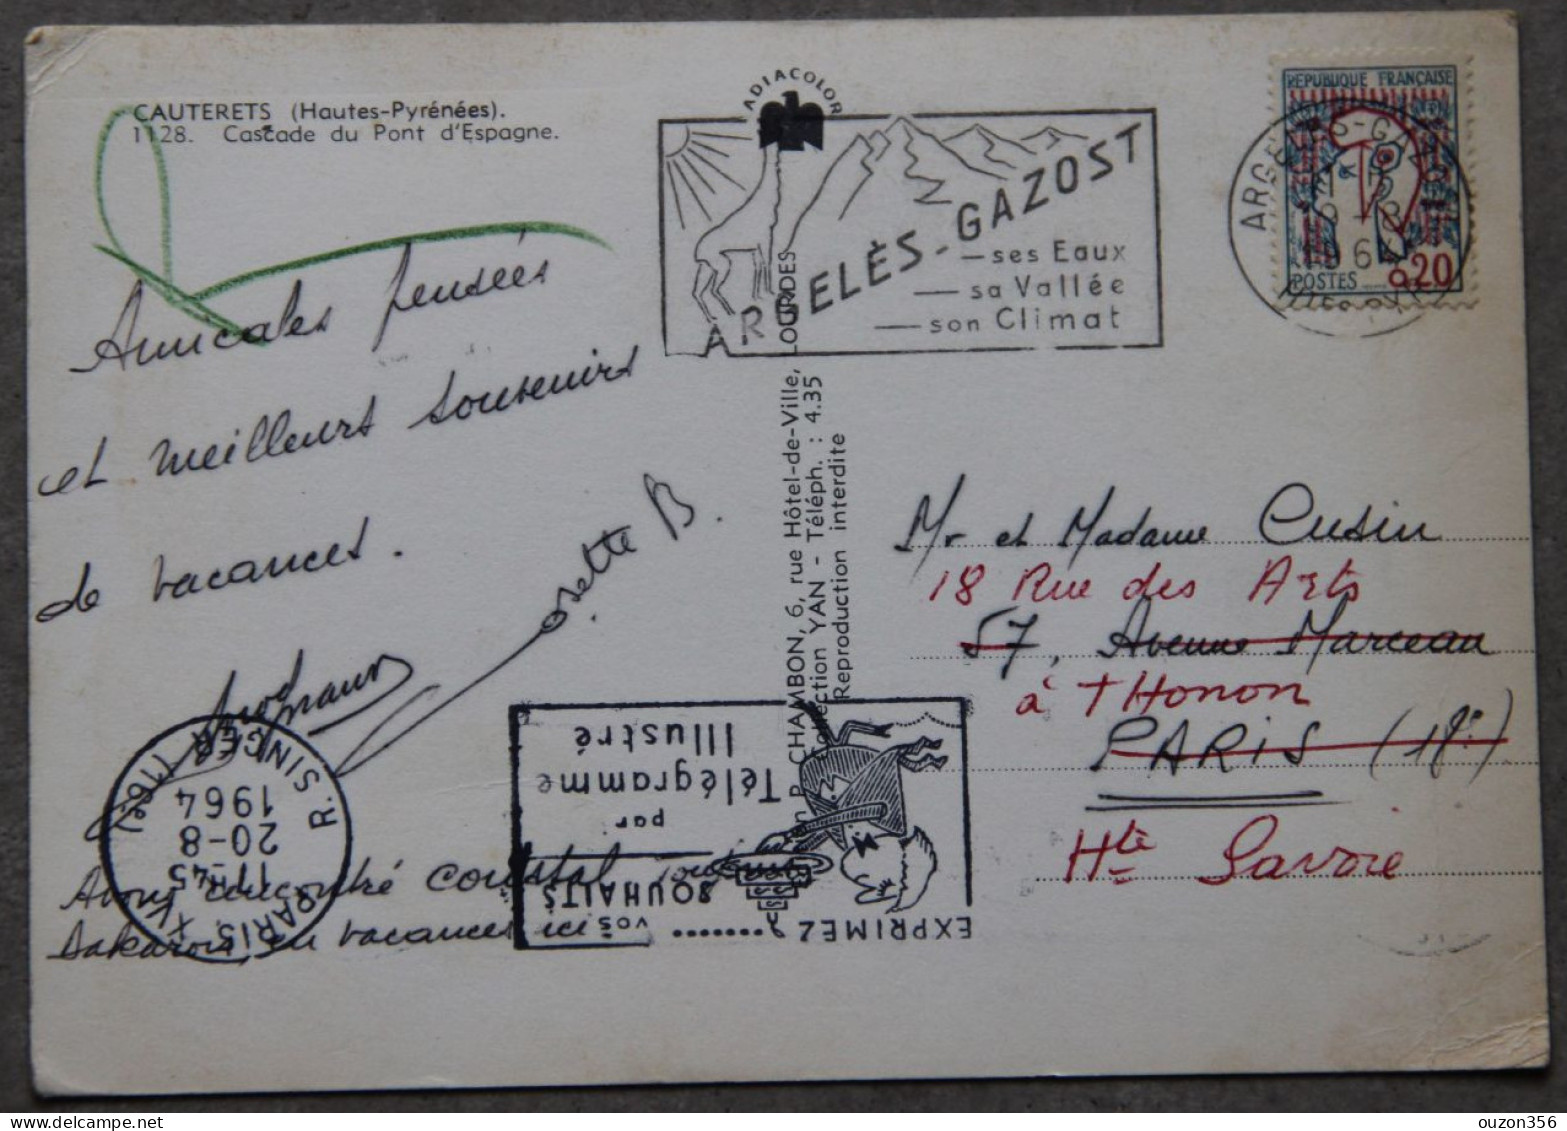 CAUTERETS (Hautes-Pyrénées).
1128. Cascade du Pont d'Espagne.
Amicales pensées
et meilleurs souvenirs
de vacances.
Josette B.
en vacances ici
ADIACOLOR
ARGELÈS-GAZOST
ses Eaux
sa Vallée
son Climat
REPUBLIQUE FRANÇAISE
POSTES
0,20
CHAMBON, 6, rue Hôtel-de-Ville, LOURDES
Collection YAN - Téléph. : 4.35
Reproduction interdite
Mr et Madame Cusin
18 Rue des Arts
57, Avenue Marceau
à THonon
PARIS (18e)
Hte Savoie
EXPRIMEZ
VOS
SOUHAITS
par
Télégramme
Illustré
PARIS XVI
17-45
20-8
1964
R. SINGER (16e)
ouzon356